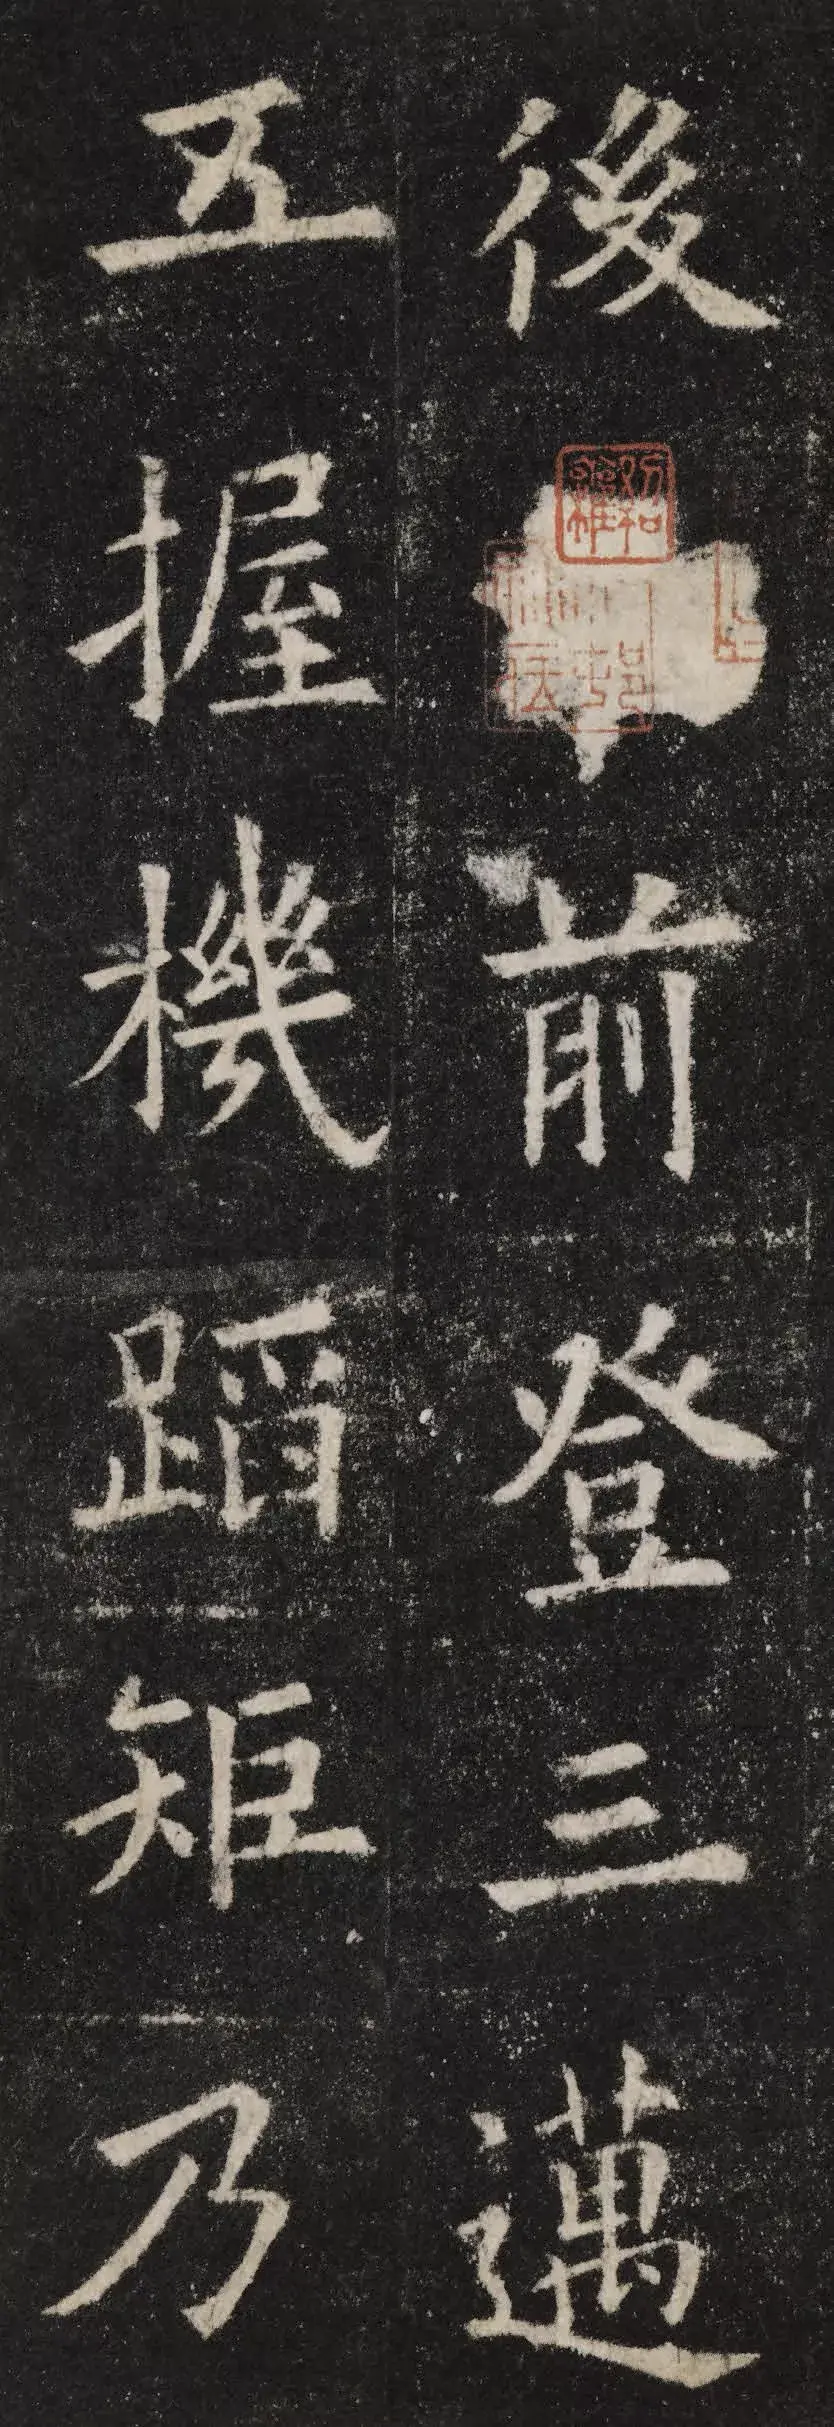 後前登三邁
五握機蹈矩乃